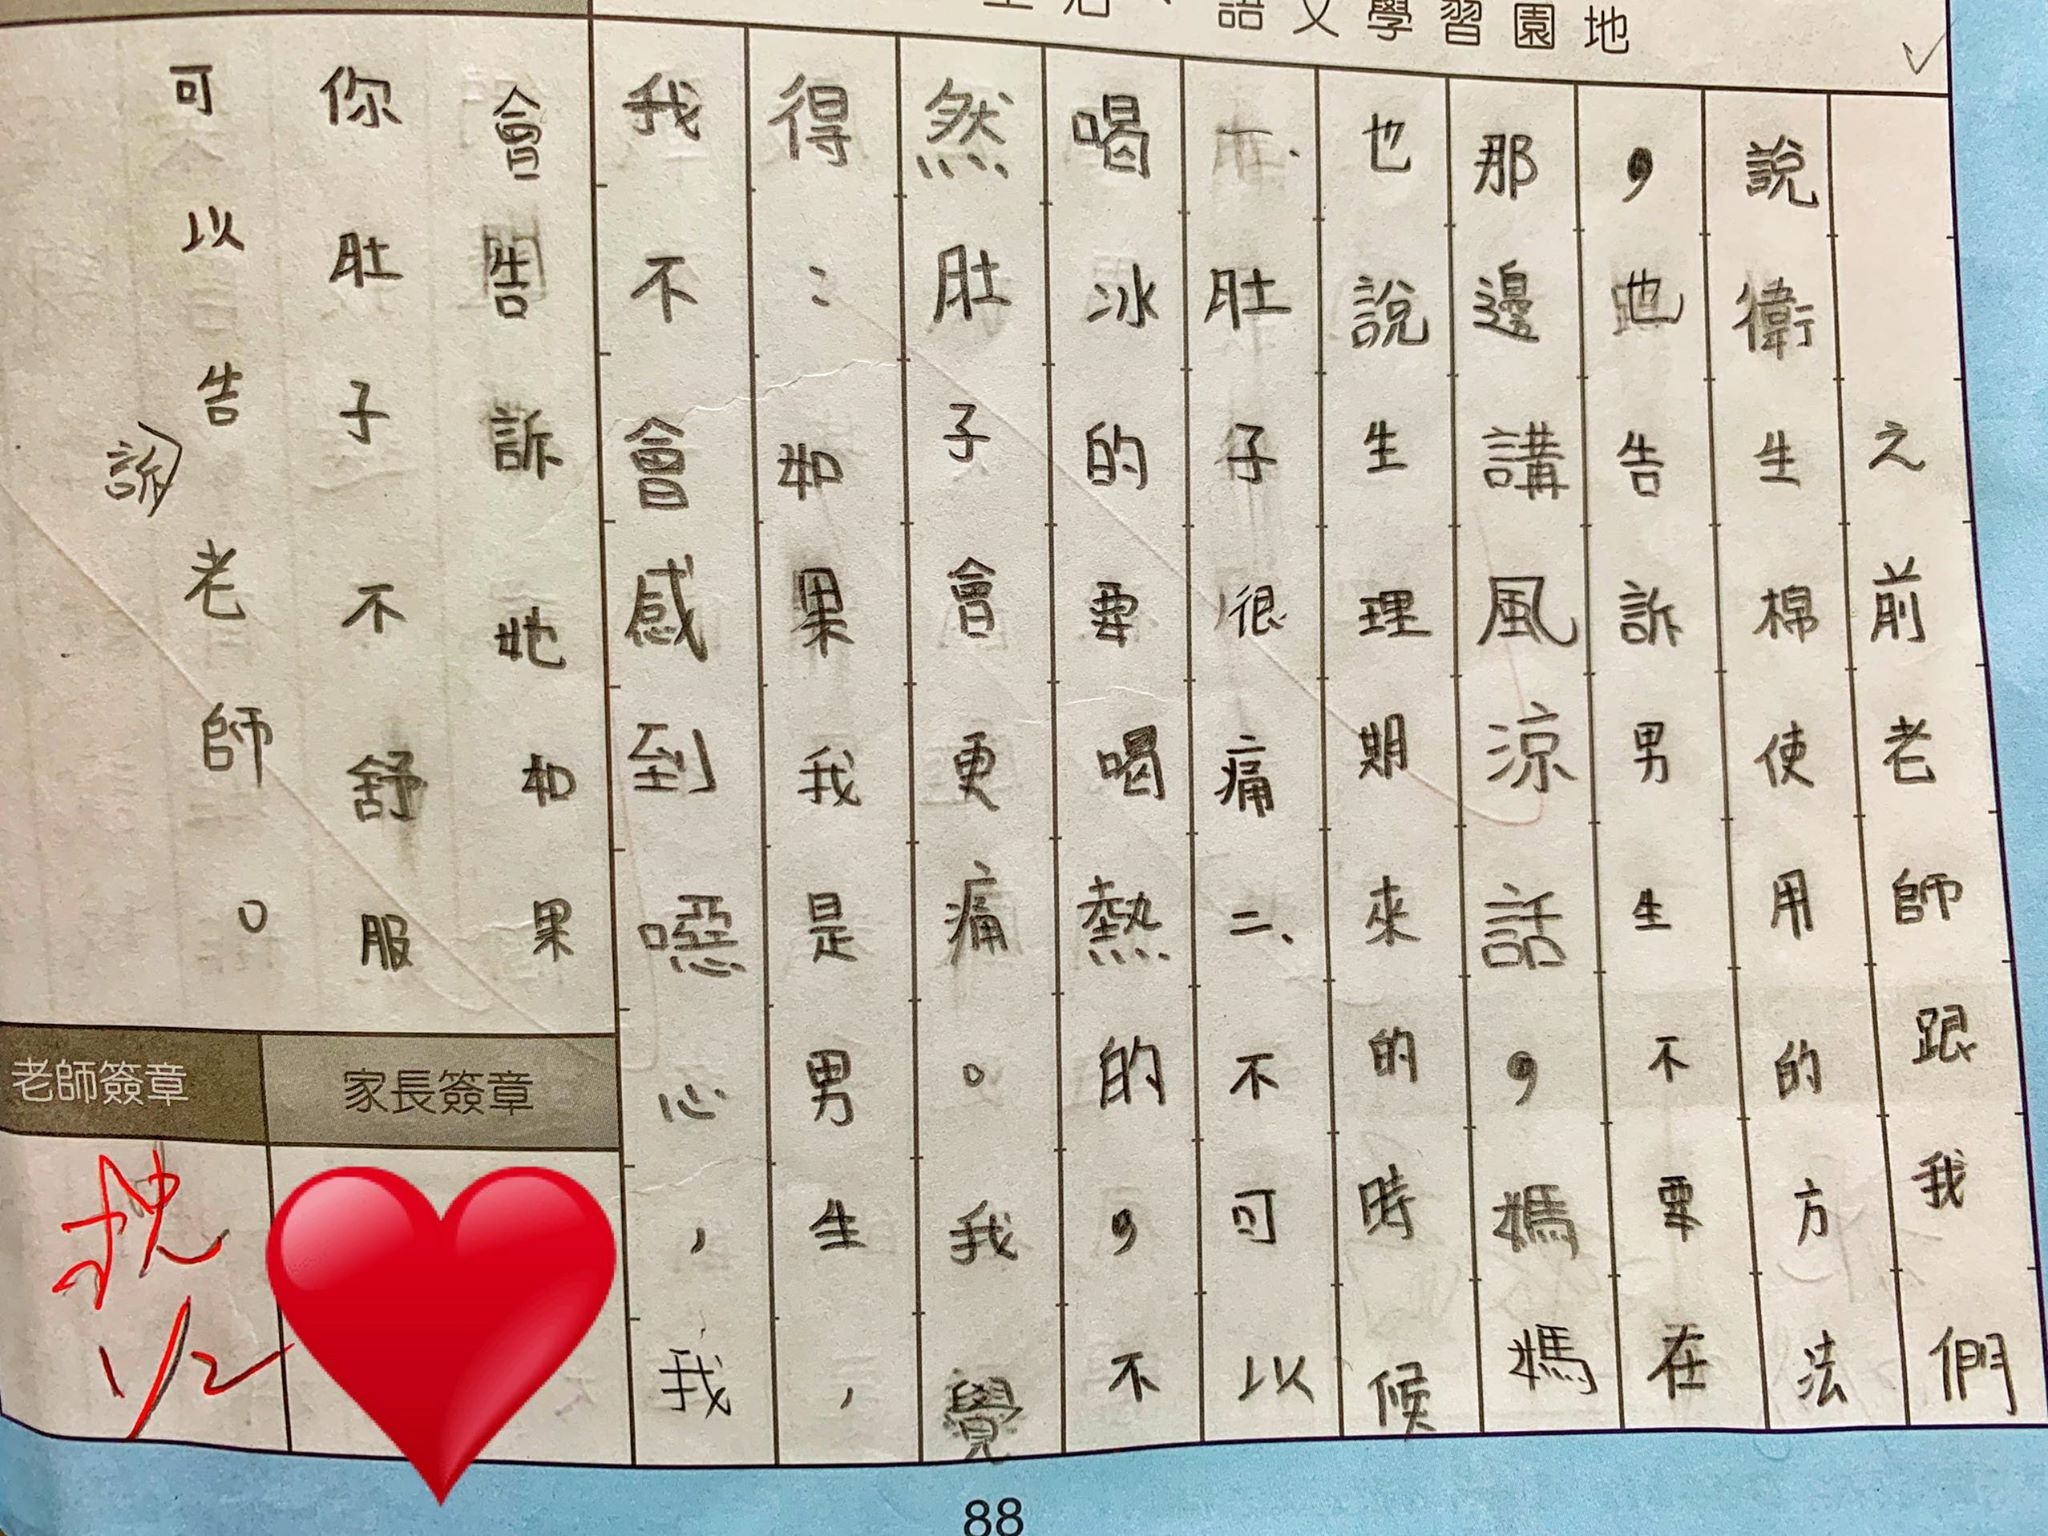 語文學習園地
之前老師跟我們
說衛生棉使用的方法
，也告訴男生不要在
那邊講風涼話，媽媽
也說生理期來的時候
一、肚子很痛二、不可以
喝冰的要喝熱的，不
然肚子會更痛。我覺
得：如果我是男生，
我不會感到噁心，我
會告訴她如果
你肚子不舒服
可以告老師。
訴
家長簽章
老師簽章
1/2
88